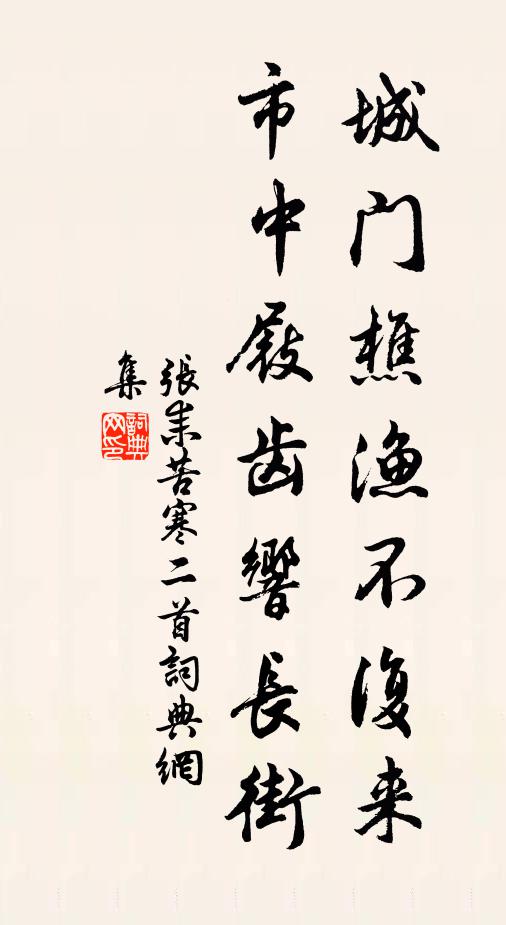 城门樵渔不復来
市中屐齿響長街
張耒苦寒二首詞典網
集
詞典
网印